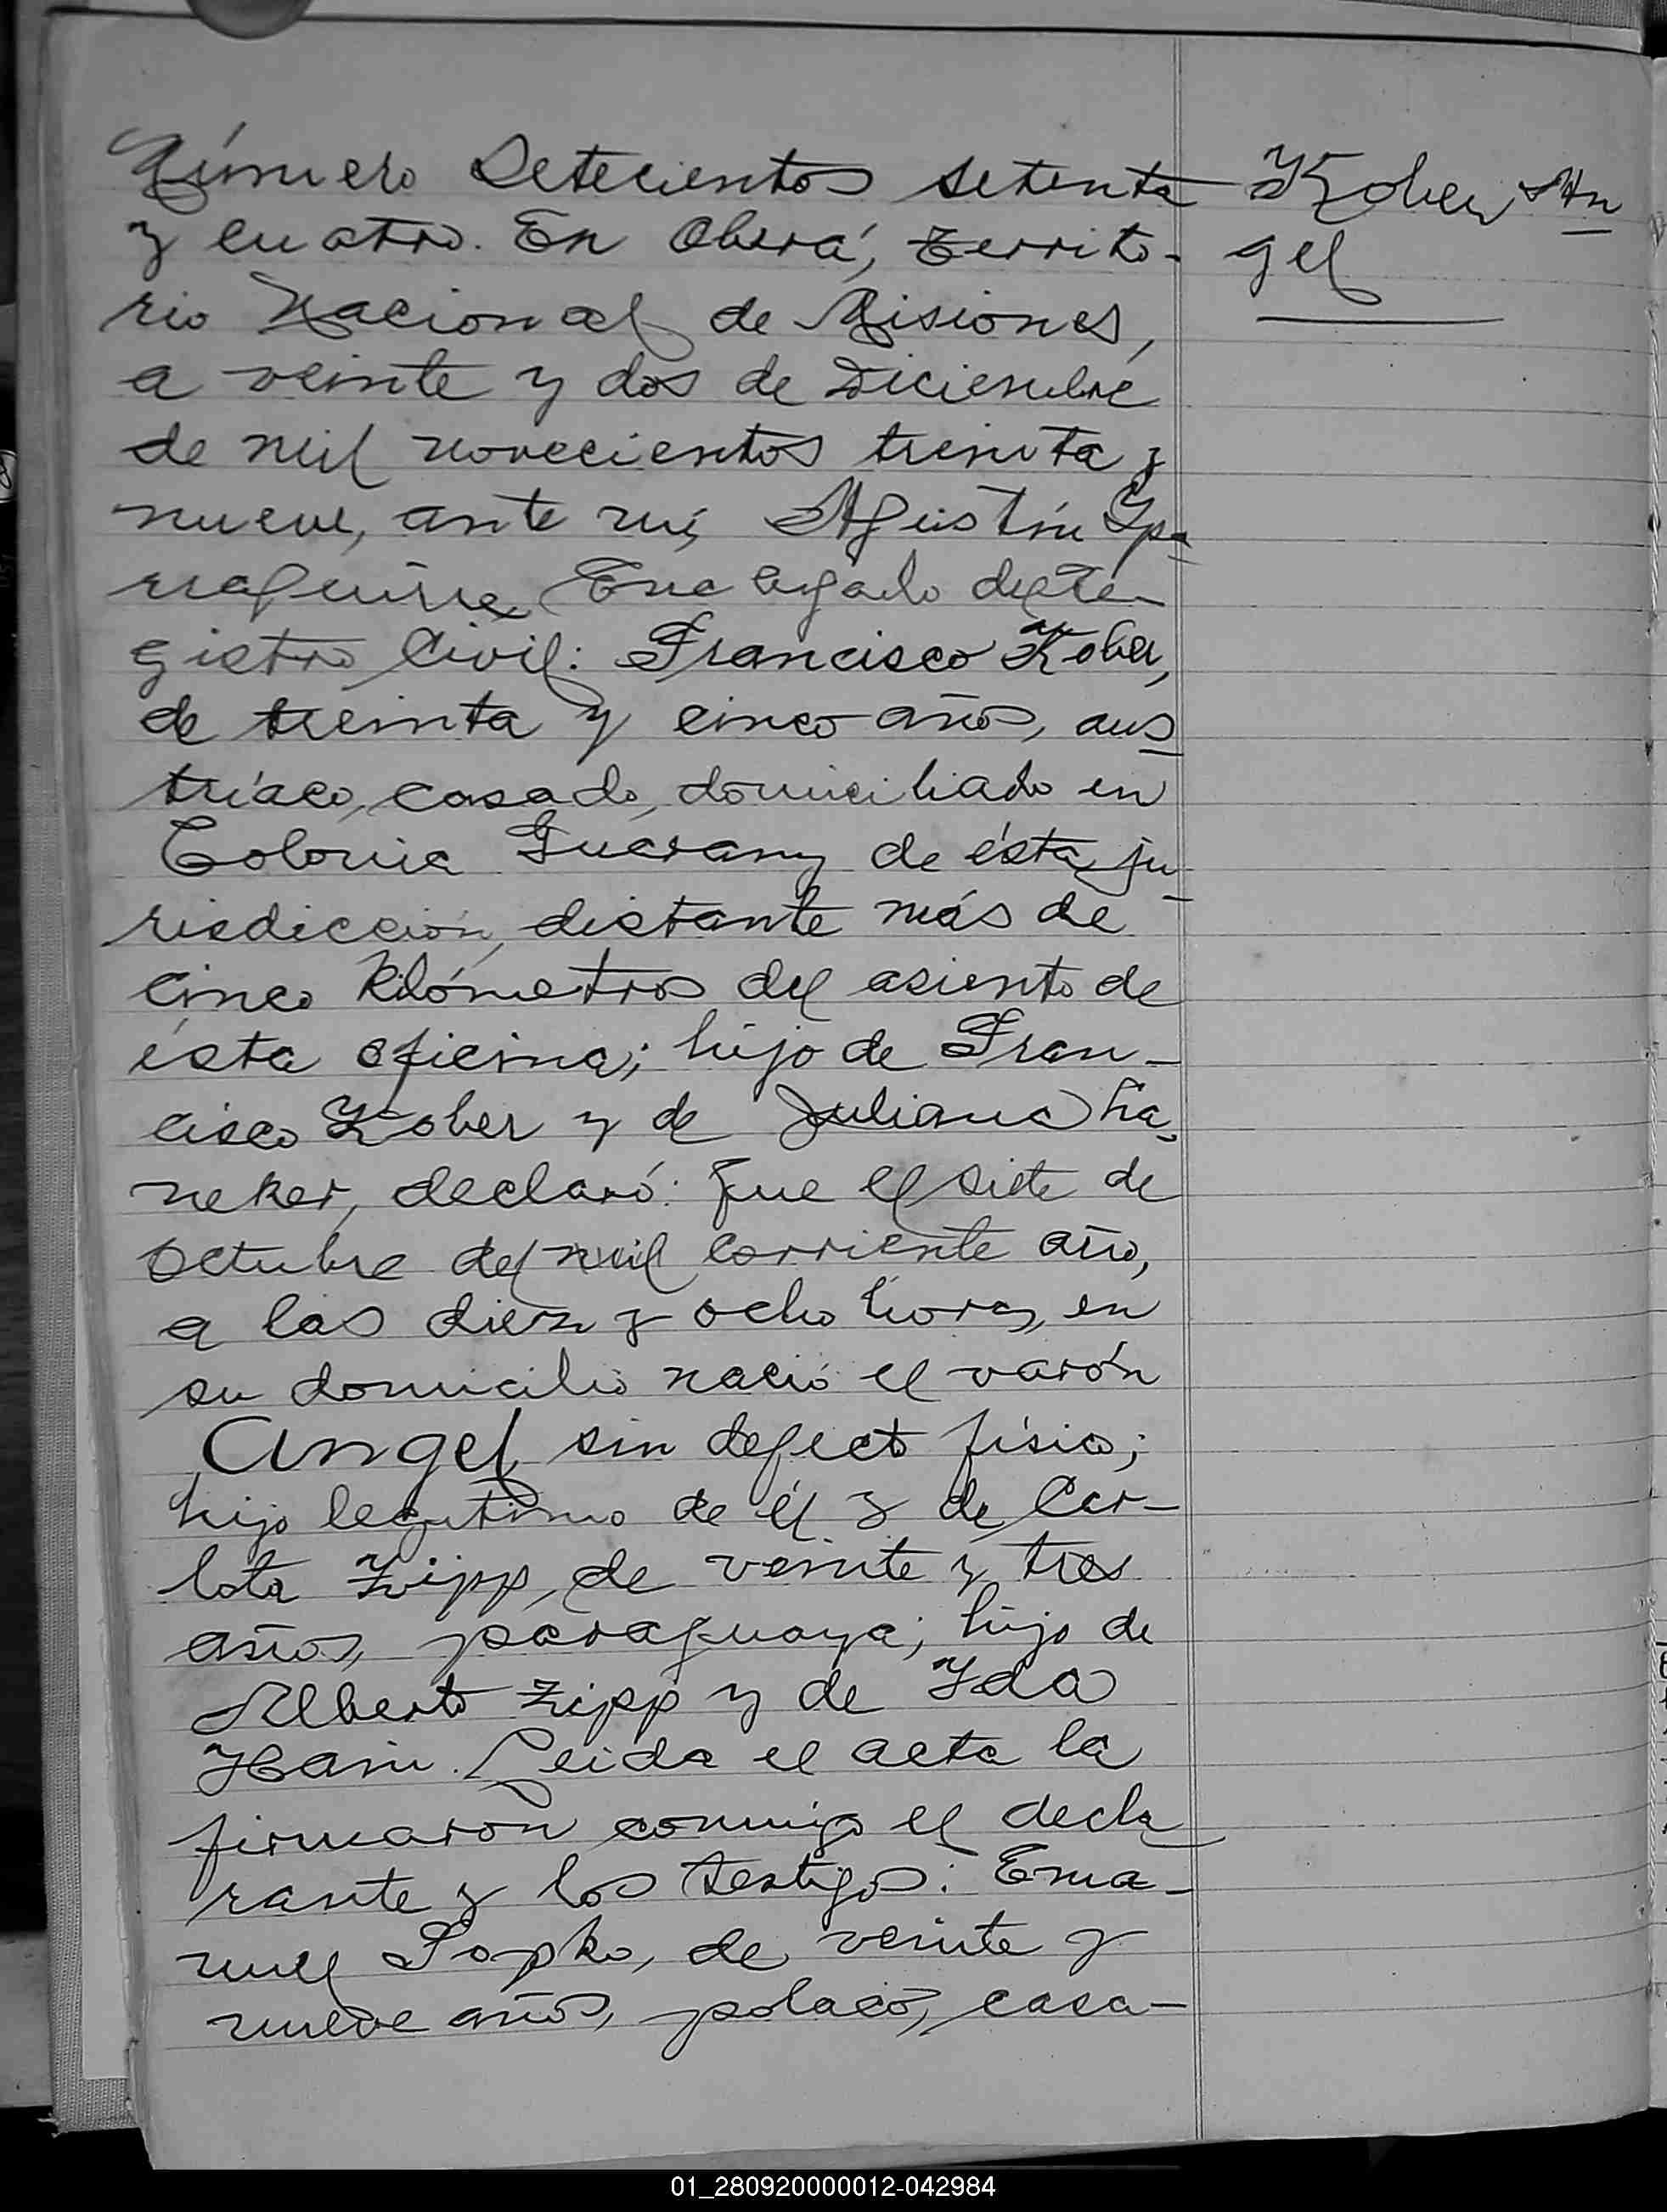 Número Setecientos setenta
Kober An
y cuatro. En Oberá, Territo-
gel
rio Nacional de Misiones,
a veinte y dos de Diciembre
de mil novecientos treinta y
nueve, ante mí, Agustín Ypa
rraguirre Encargado del Re-
gistro Civil: Francisco Kober,
de treinta y cinco años, aus
triaco, casado, domiciliado en
Colonia Guarany de ésta ju-
risdicción, distante más de
cinco Kilómetros del asiento de
ésta oficina; hijo de Fran-
cisco Kober y de Juliana Ha-
neker, declaró: Que el siete de
Octubre del mil corriente año,
a las diez y ocho horas, en
su domicilio nació el varón
Angel, sin defecto físico;
hijo legítimo de él y de Car-
lota Zipp, de veinte y tres
años, paraguaya; hijo de
Alberto Zipp y de Ida
Hain. Leida el acta la
firmaron conmigo el decla
rante y los testigos: Ema-
nuel Sopko, de veinte y
nueve años, polaco, casa-
01_280920000012-042984